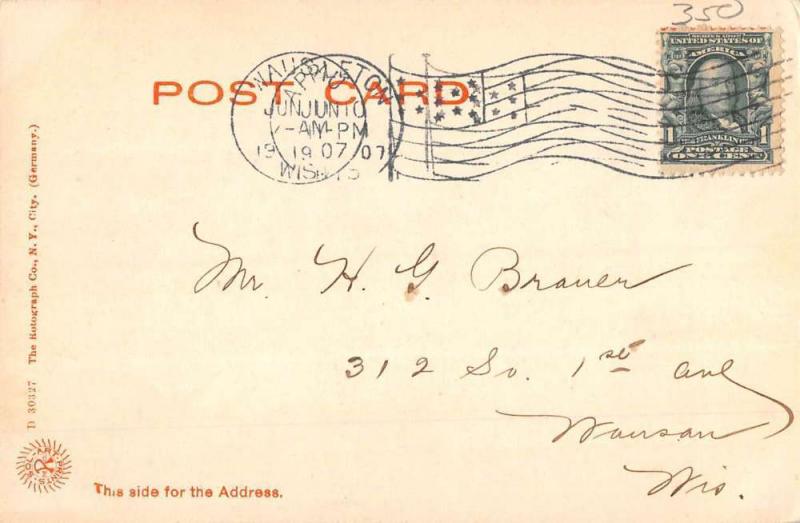 350
POST CARD
SERIES 1902
UNITED STATES OF
AMERICA
1 FRANKLIN 1
POSTAGE
ONE CENT
JUN JUN 10
AM-PM
19 19 07 07
WIS WIS
Mr. H. G. Brauer
312 So. 1st ave
Wausau
Wis.
D 30327 The Rotograph Co., N. Y., City. (Germany.)
This side for the Address.